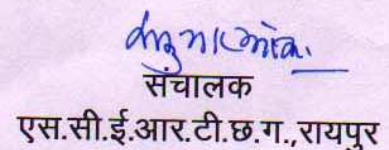 संचालक
एस.सी.ई.आर.टी.छ.ग.,रायपुर